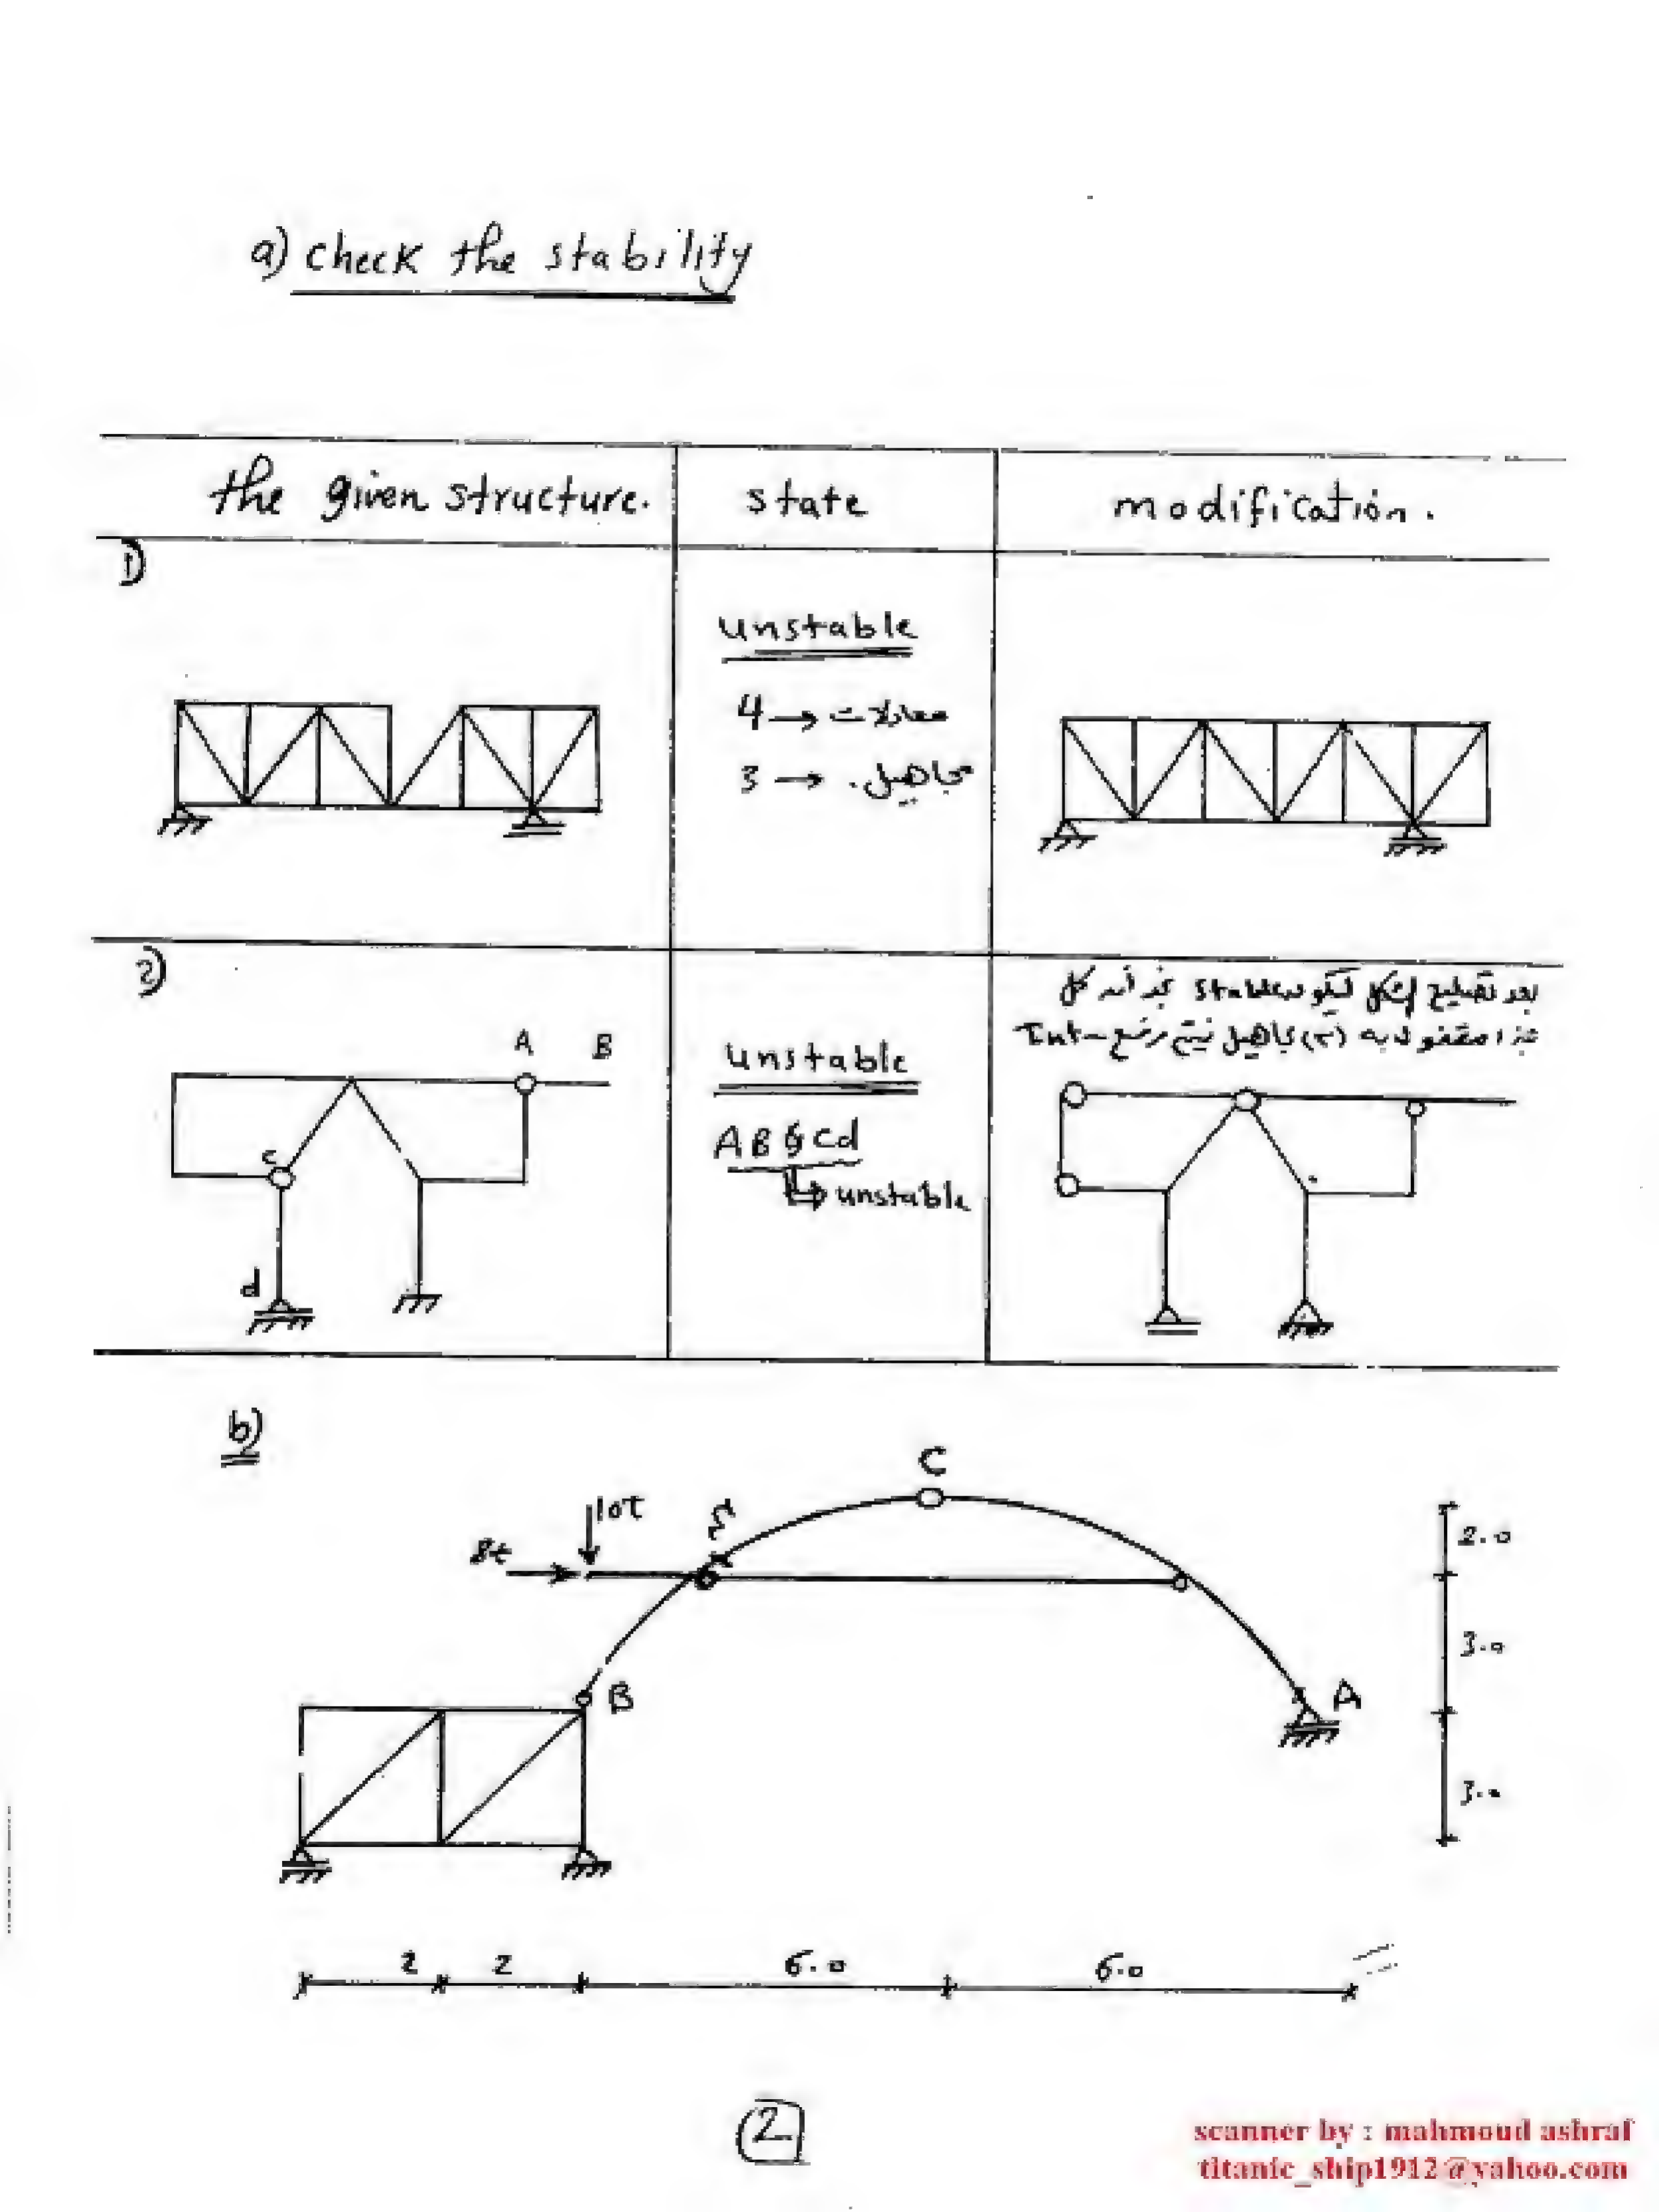 a) check the stability
the given structure.
state
modification.
1)
unstable
4 → معادلات
3 → مجاهيل.
2)
A B
c
d
unstable
AB & cd
↳ unstable
بعد تصليح الشكل ليكون stable نجد أن كل
جزء مقفول به (٣) مجاهيل
b)
C
10t
8t
S
B
A
2.0
3.0
3.0
2 2 6.0 6.0
2
scanner by : mahmoud ashraf
titanic_ship1912@yahoo.com